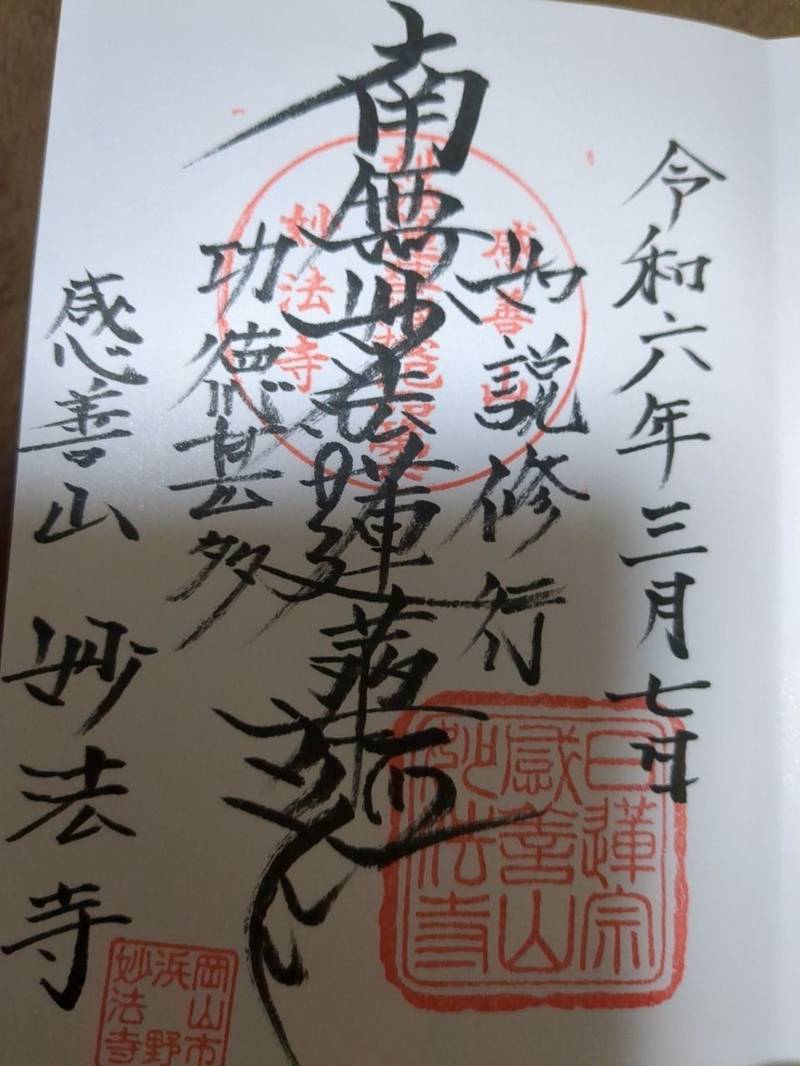 令和六年三月七日
如説修行
南無妙法蓮華経
功徳甚多
感善山 妙法寺
感善山
妙法寺
日蓮宗
感善山
妙法寺
岡山市
浜野
妙法寺